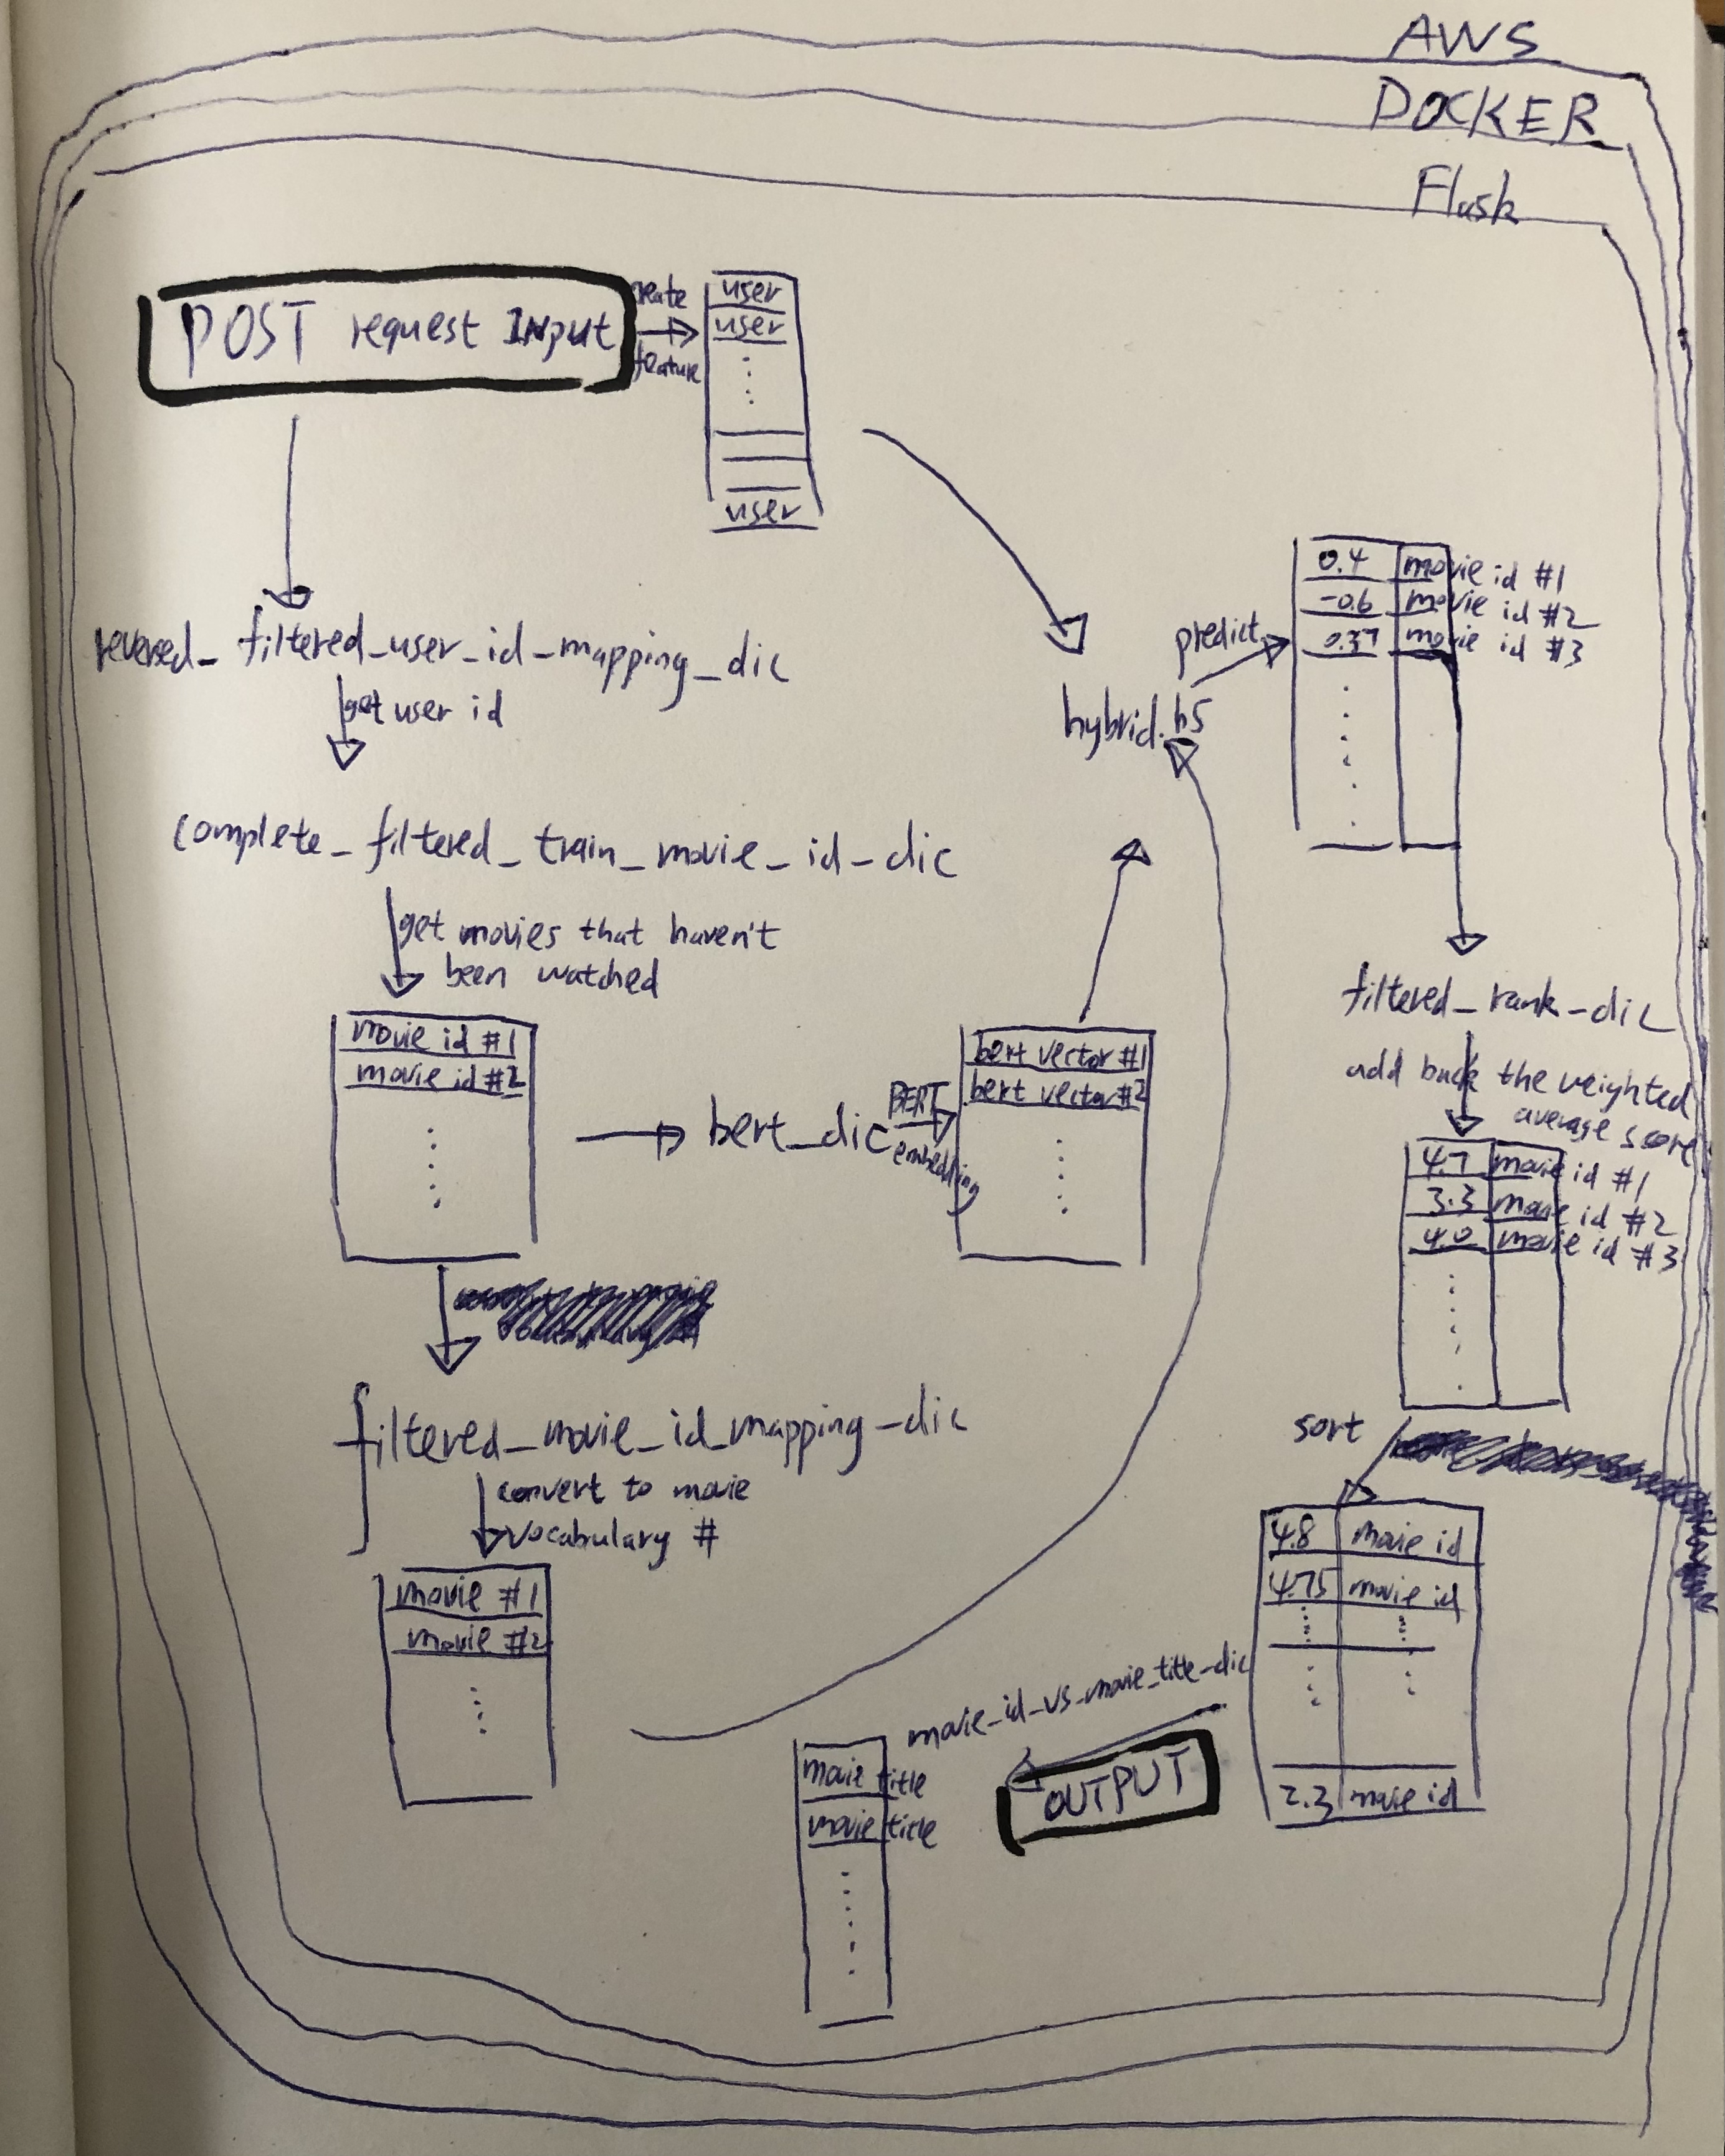 AWS
DOCKER
Flask
POST request INput
create
feature
user
user
user
revered_filtered_user_id_mapping_dic
get user id
complete_filtered_train_movie_id_dic
get movies that haven't
been watched
movie id #1
movie id #2
bert_dic
BERT
embedding
bert vector #1
bert vector #2
filtered_movie_id_mapping_dic
convert to movie
vocabulary #
movie #1
movie #2
hybrid.h5
predict
0.4 movie id #1
-0.6 movie id #2
0.37 movie id #3
filtered_rank_dic
add back the weighted
average score
4.7 movie id #1
3.3 movie id #2
4.0 movie id #3
sort
4.8 movie id
4.75 movie id
2.3 movie id
movie_id_vs_movie_title_dic
OUTPUT
movie title
movie title